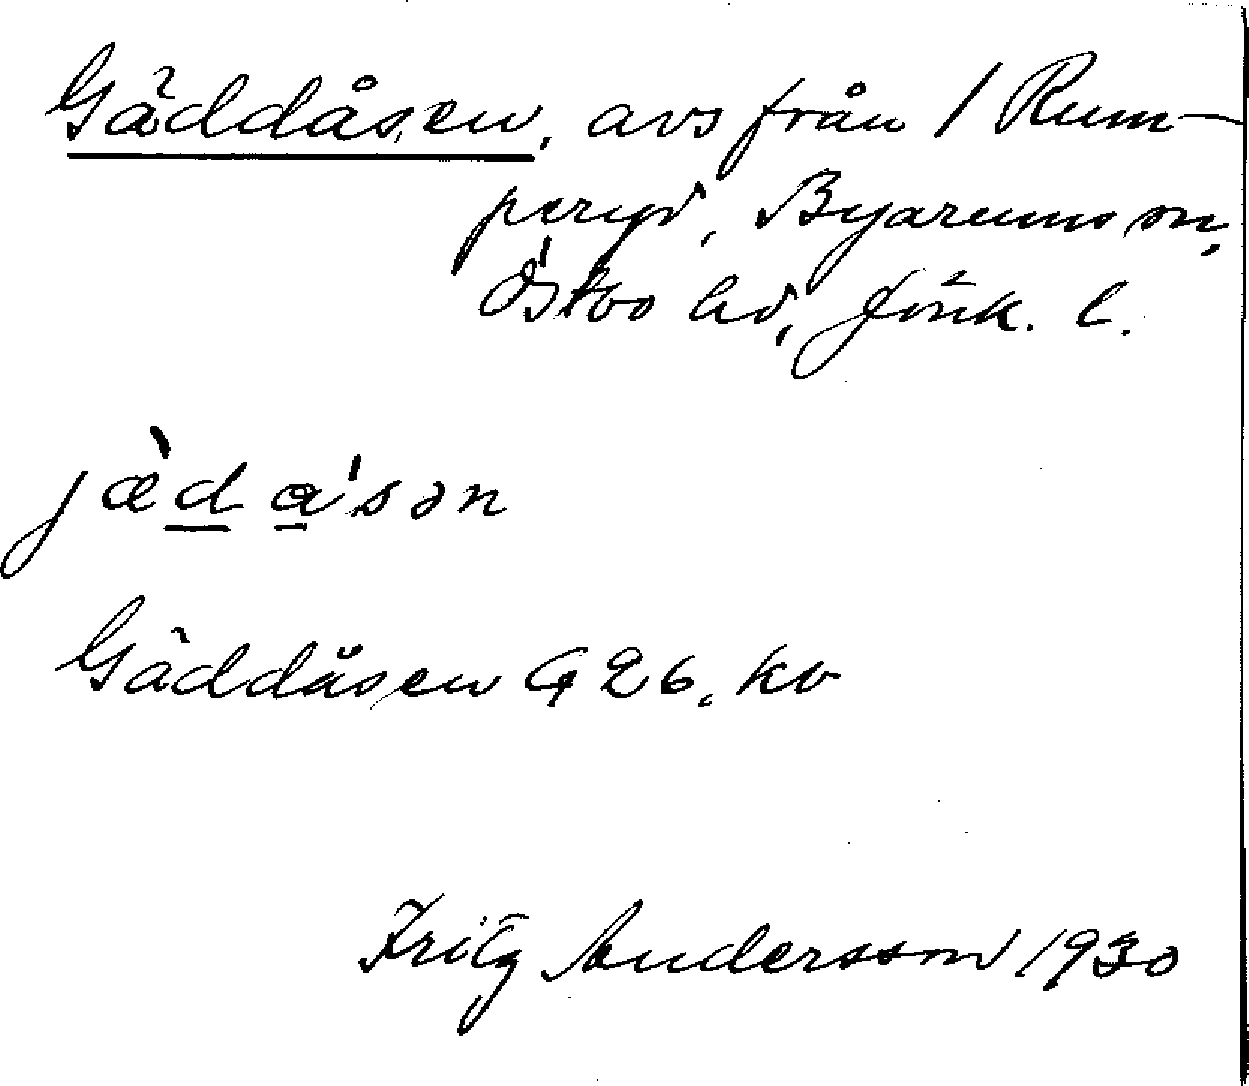 Gäddåsen, avs från 1 Rum-
peryd, Byarums sn,
Östbo hd, Jönk. l.
jæ̀da'sən
Gäddåsen G 26. kb
Fritz Andersson 1930